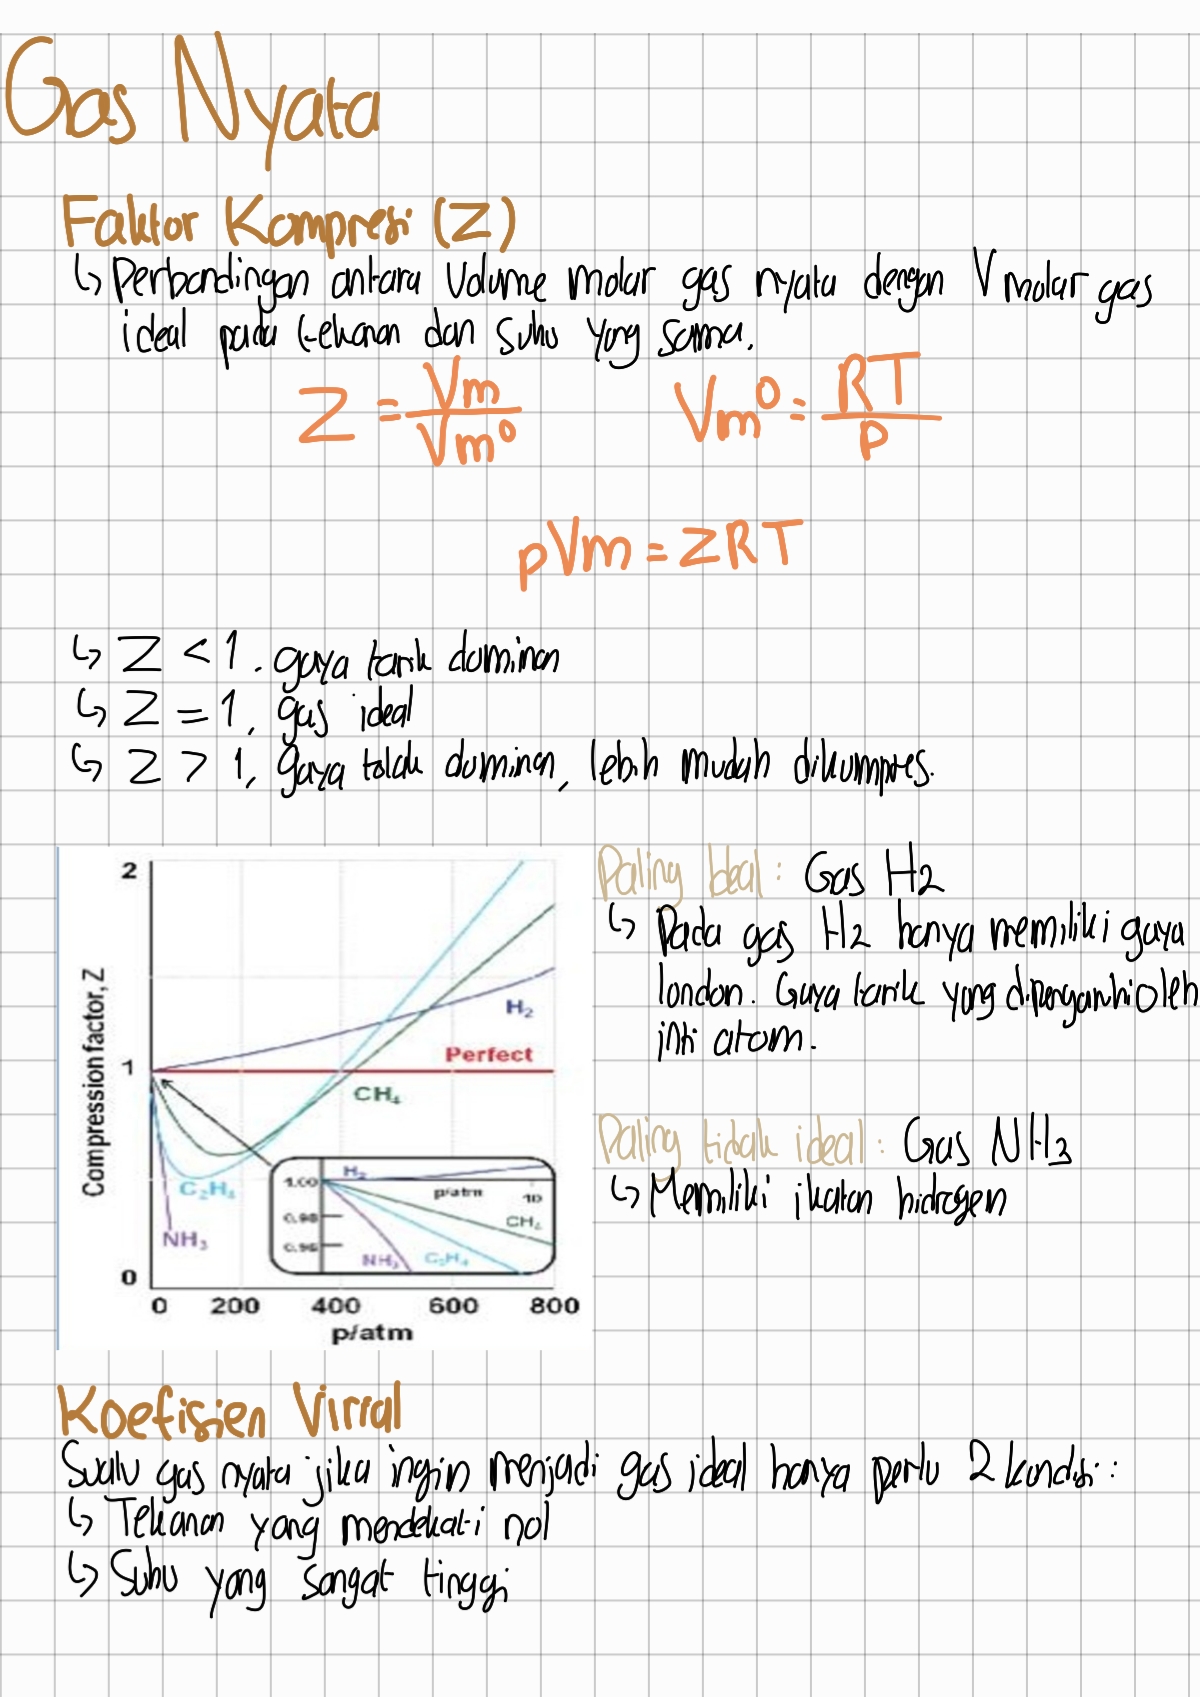 Gas Nyata
Faktor Kompresi (Z)
↳ Perbandingan antara Volume molar gas nyata dengan V molar gas
ideal pada tekanan dan suhu yang sama.
Z = Vm / Vm° Vm° = RT / P
pVm = ZRT
↳ Z < 1. gaya tarik dominan
↳ Z = 1, gas ideal
↳ Z > 1, gaya tolak dominan, lebih mudah dikompres.
2
1
0
Compression factor, Z
H₂
Perfect
CH₄
C₂H₄
NH₃
1.00
0.98
0.96
H₂
p/atm
10
CH₄
NH₃
C₂H₄
0 200 400 600 800
p/atm
Paling Ideal : Gas H2
↳ Pada gas H2 hanya memiliki gaya
london. Gaya tarik yang dipengaruhi oleh
inti atom.
Paling tidak ideal : Gas NH3
↳ Memiliki ikatan hidrogen
Koefisien Virral
Suatu gas nyata jika ingin menjadi gas ideal hanya perlu 2 kondisi :
↳ Tekanan yang mendekati nol
↳ Suhu yang sangat tinggi